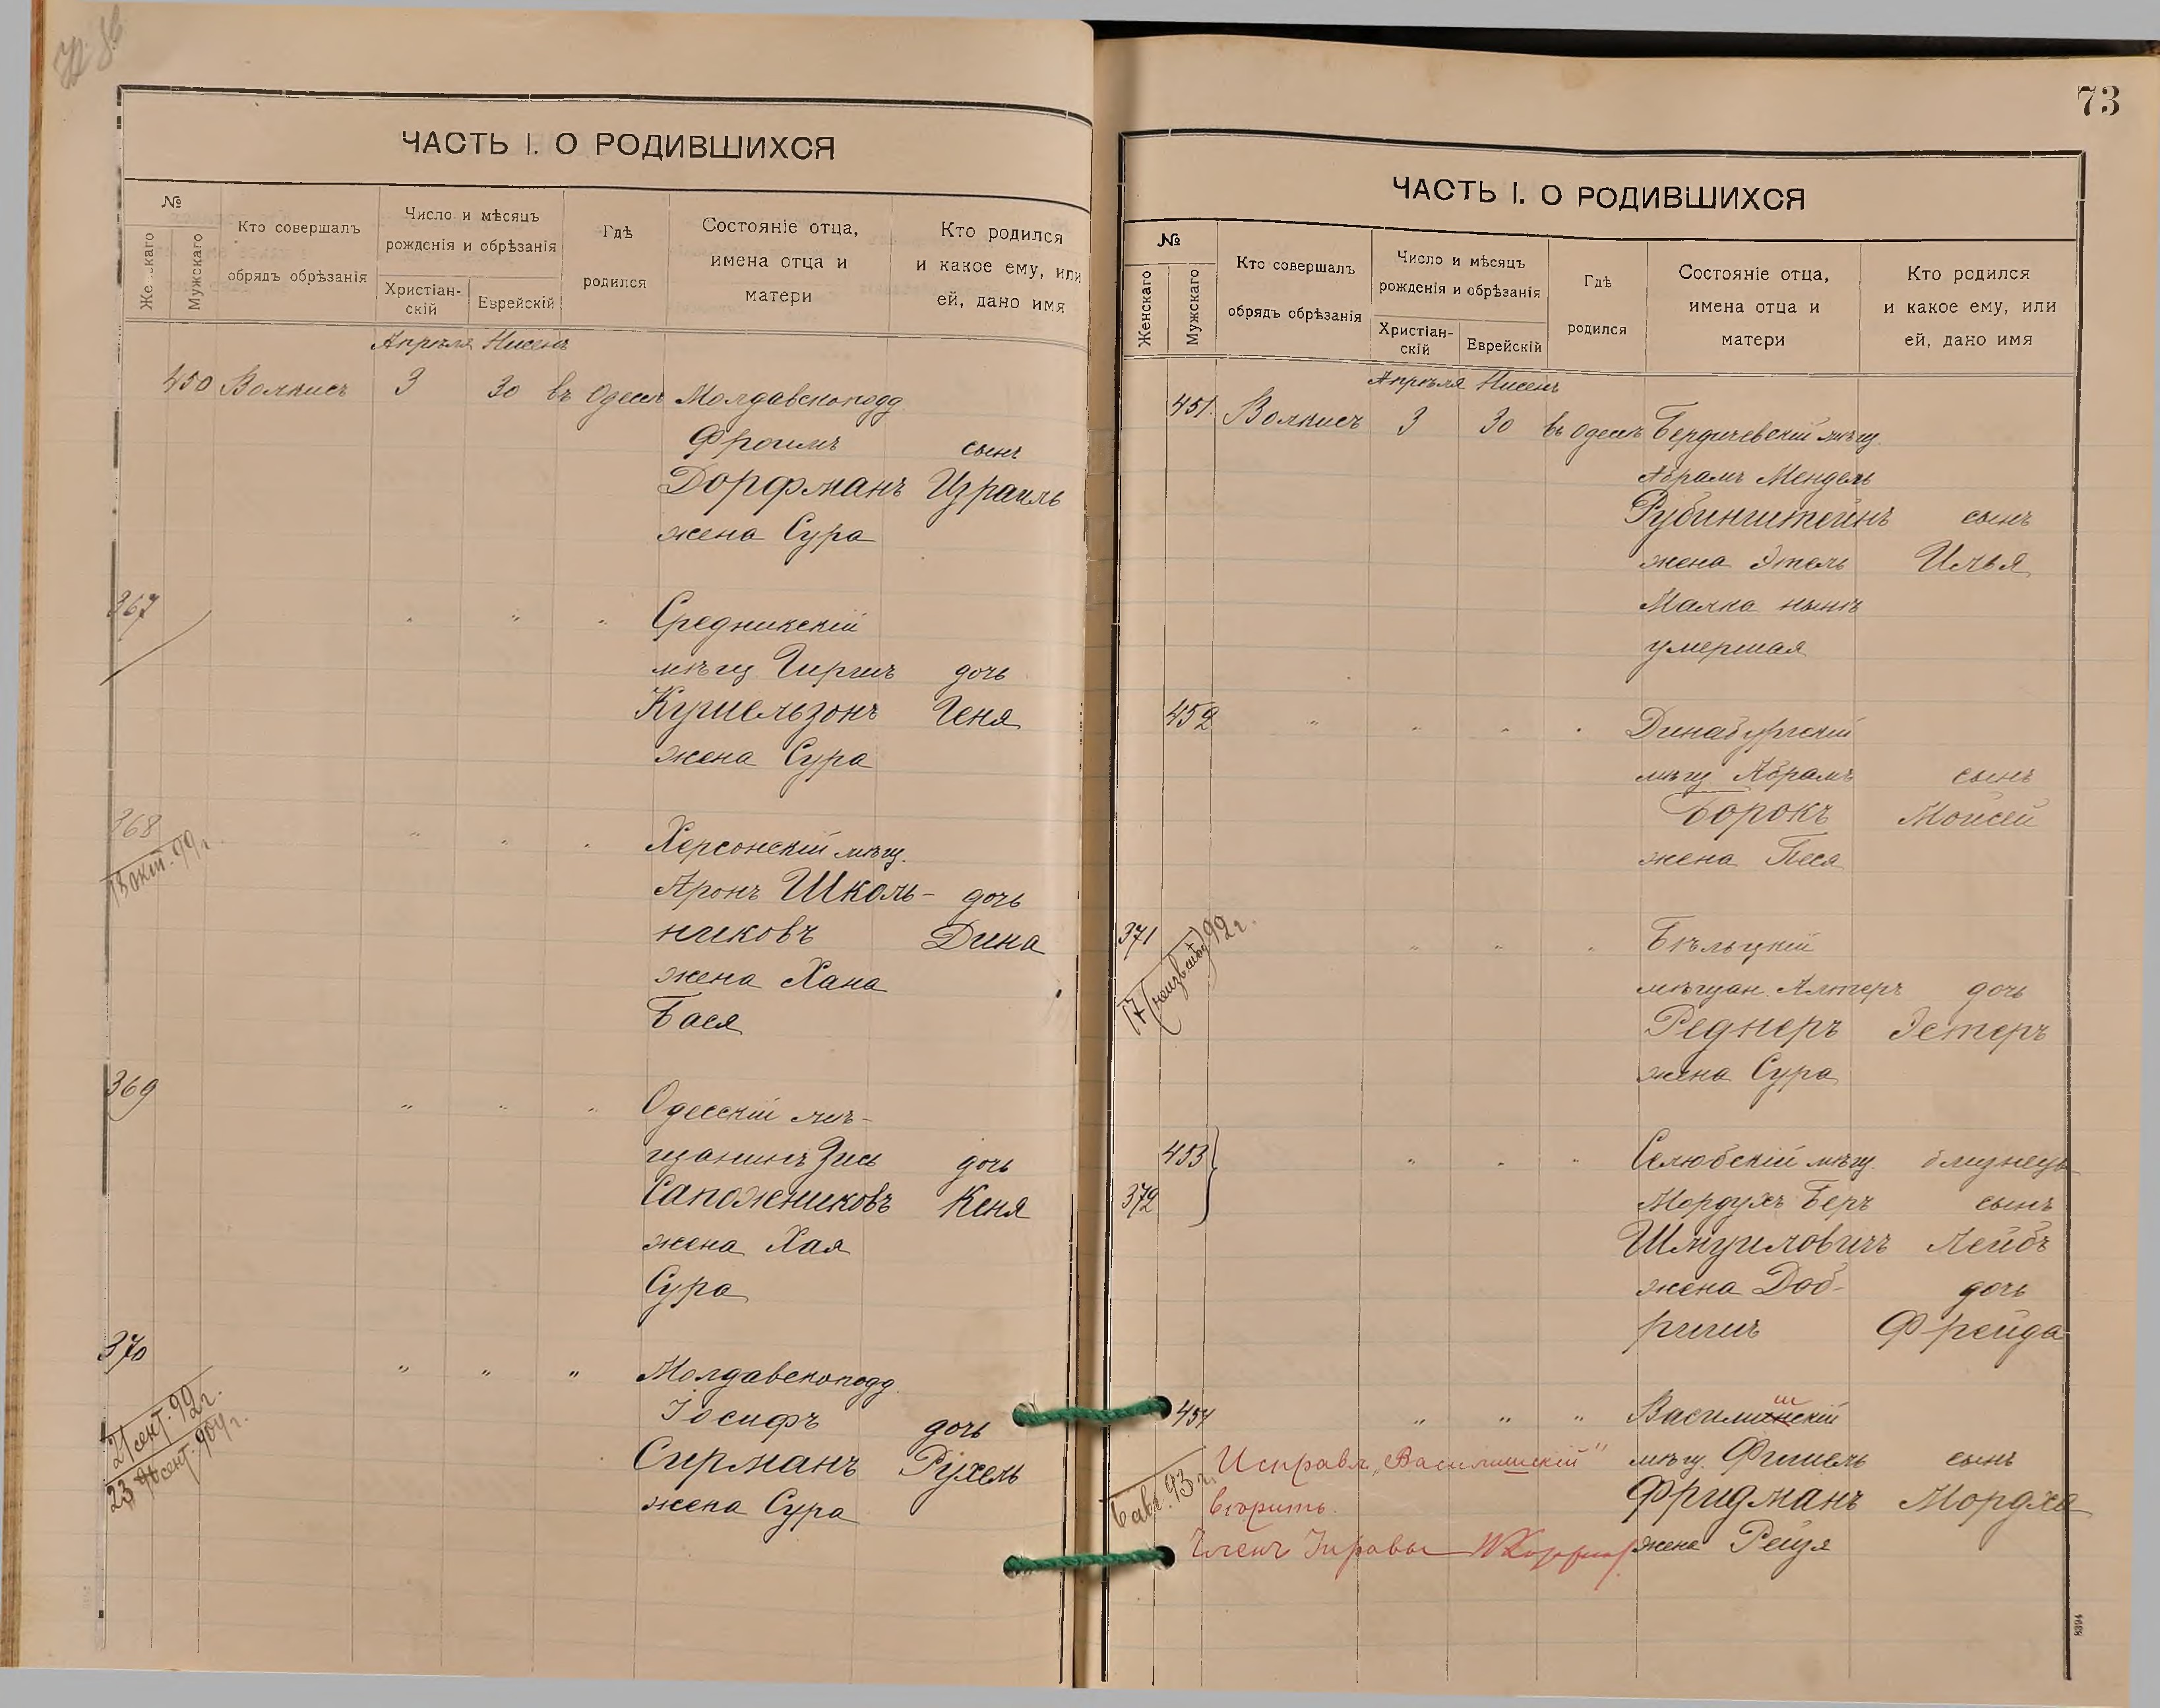 ЧАСТЬ I. О РОДИВШИХСЯ
№
Женскаго
Мужскаго
Кто совершалъ
обрядъ обрѣзанія
Число и мѣсяцъ
рожденія и обрѣзанія
Христіан-
скій
Еврейскій
Гдѣ
родился
Состояніе отца,
имена отца и
матери
Кто родился
и какое ему, или
ей, дано имя
Апрѣля Нисенъ
450 Волкисъ 3 30 въ Одессѣ Молдавскоподд.
Фроимъ сынъ
Дорфманъ Израиль
жена Сура
367 " " " Средникскій
мѣщ. Гиршъ дочь
Кушельзонъ Геня
жена Сура
368 " " " Херсонскій мѣщ.
13 окт. 99 г.
Аронъ Школь- дочь
никовъ Дина
жена Хана
Бася
369 " " " Одесскій мѣ-
щанинъ Зись дочь
Сапожниковъ Кеня
жена Хая
Сура
370 " " " Молдавскоподд.
21 сент. 92 г.
23 сент. 904 г.
Іосифъ дочь
Сирманъ Рухель
жена Сура
73
ЧАСТЬ I. О РОДИВШИХСЯ
№
Женскаго
Мужскаго
Кто совершалъ
обрядъ обрѣзанія
Число и мѣсяцъ
рожденія и обрѣзанія
Христіан-
скій
Еврейскій
Гдѣ
родился
Состояніе отца,
имена отца и
матери
Кто родился
и какое ему, или
ей, дано имя
Апрѣля Нисенъ
451. Волкисъ 3 30 въ Одессѣ Бердичевскій мѣщ.
Абрамъ Мендель
Рубинштейнъ сынъ
жена Этель Илья
Малка нынѣ
умершая
452 " " " " Динабургскій
мѣщ. Абрамъ сынъ
Борокъ Моисей
жена Песя
371 " " " Бѣльцкій
92 г.
мѣщан. Алтеръ дочь
Реднеръ Эстеръ
жена Сура
453 " " " Селюбскій мѣщ. близнецы
372 Мордухъ Беръ сынъ
Шмуиловичъ Лейбъ
жена Доб- дочь
ришъ Фрейда
454 " " " Василишскій
Исправл. „Василишскій" мѣщ. Фишель сынъ
6 авг. 93 г.
вѣрить. Фридманъ Мордха
Членъ Управы жена Рейзя
8394